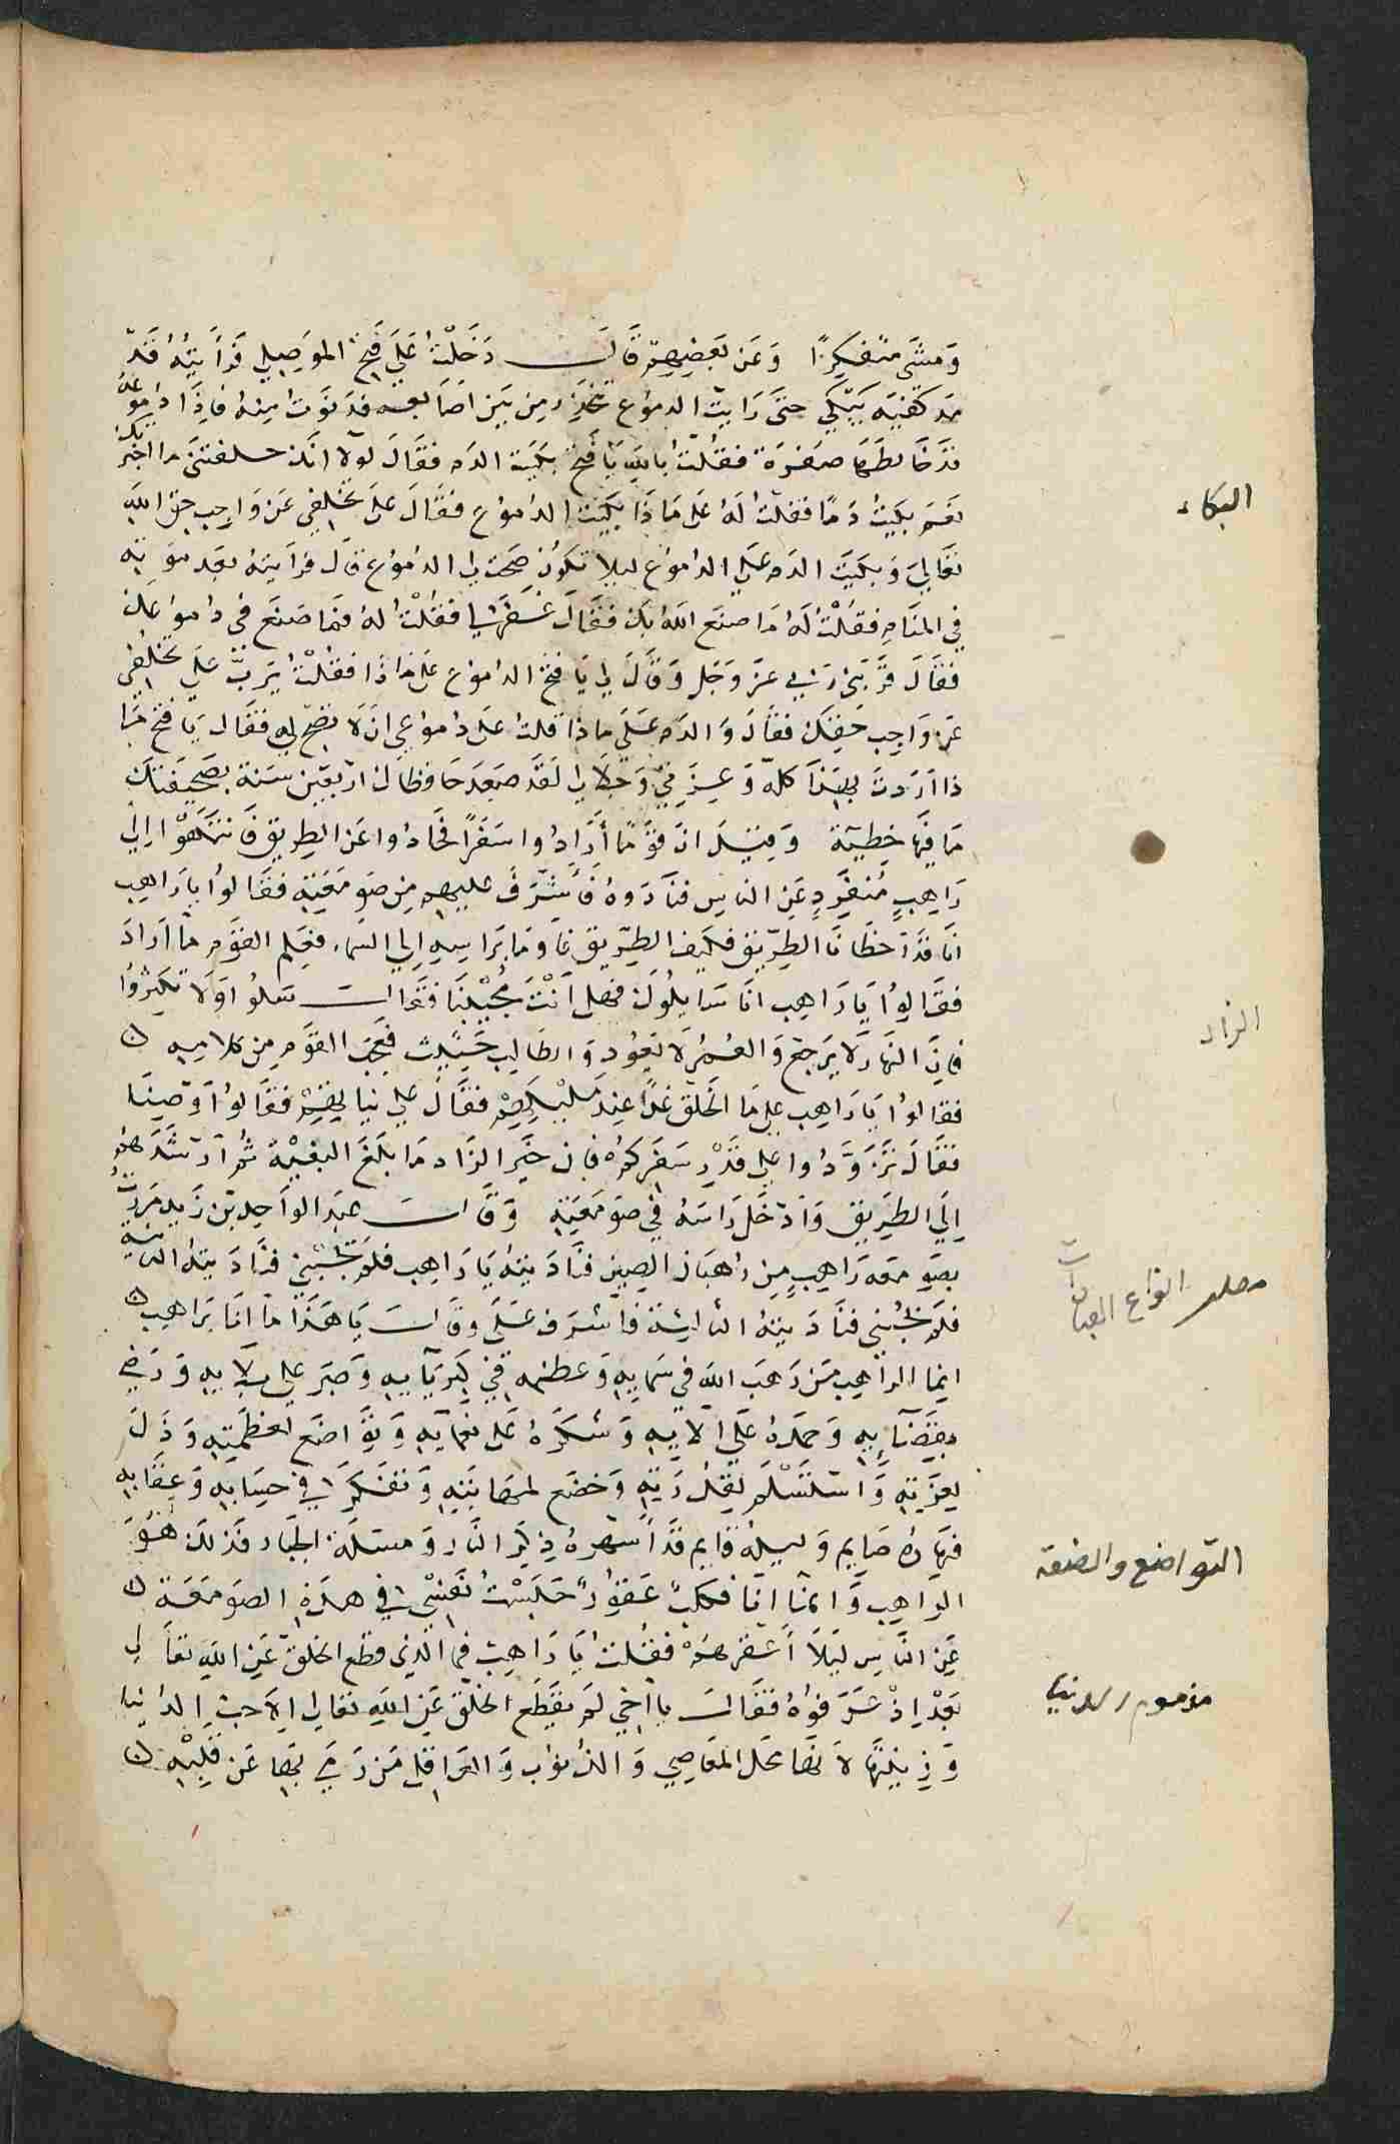 وَمَشَى مُتَفَكِرًا وَعَن بَعضِهِمْ قَالَ دَخَلْتُ عَلَى فَتح المَوصِلِي فَرَأَيتُهُ قَدْ
مَد كفيَه يَبكي حتىَ رَايت الدموُع تنحَدر مِن بَين اصَابعه فدَنَوت مِنهُ فاِذَا دُموُعهُ
قدَ خَالطَهَا صفرَة فقلتُ بالله يَا فَتح بَكيَت الدَم فقَالَ لَولا انكَ حلفتنىَ ما اخبَرتك
نعَم بكيتُ دَمًا فقلتُ لهُ عَلى مَاذَا بَكَيتَ الدُموُع فقَالَ علىَ تخلِفي عَن وَاجِب حق اللهِ
تعَالىَ وَبكيتَ الدَم عَلى الدُموُع ليلا تكوُن صَحت لي الدُموُع قال فرَايتهُ بعَد مَوتِه
في المنَام فقلتُ لهُ مَا صنعَ اللهُ بكَ فقَالَ غَفرَ لي فقُلْتُ لهُ فمَا صَنعَ في دُموُعِكَ
فقَالَ قرَّبَني رَبي عزَ وَجَل وَقَالَ لي يَا فتح الدُموُع عَلى مَاذَا فقُلْتُ يَرَبِّ عَلىَ تخلُفي
عَن وَاجب حَقِكَ فقَالَ وَالدَم عَلىَ ماذا قلتُ عَلى دُموُعي ان لَا تصِح لي فقال يَا فتح مَا
ذا اَرَدتَ بهذَا كلهِ وَعِزَتي وَجَلالي لقَد صَعدَ حَافظاكَ ارْبعَين سَنة بصَحيفتكَ
مَا فيهَا خِطيَة وَقِيلَ انَ قوَمًا أَرَادُوا سَفرًا فحَادُوا عَن الطريق فَانتهَوا اِلى
رَاهِبٍ مُنفَرِدٍ عَن الناس فنَادَوهُ فَأشرَفَ عليهم مِن صَومعَتِهِ فقَالوُا يا رَاهِب
انَا قدَ اخطَانَا الطرِيق فكيَف الطرِيق فَاومَا برَاسِهِ اِلى السَماء فعَلم القَوم مَا اَرَادَ
فقَالوُا يَا رَاهِب انَا سَايلُونَ فهل اَنْتَ مُجِيْبنَا فقَالَ سَلوُا وَلَا تكثِرُوا
فاِنَ النهَار لَا يَرجعَ وَالعُمُر لَا يَعوُد وَالطَالِب حَثِيث فعَجبَ القَوم مِن كلامِهِ
فقالوُا يَا رَاهِب عَلى مَا الخَلق غدًا عِندَ مَلِيكِهِمْ فقَالَ عَلى نياتِهِم فقَالوُا اَوصِينَا
فقَالَ تزَوَّدُوا عَلى قَدْر سَفَركُم فان خَير الزَاد مَا بَلغَ البغيَة ثُم اَرْشَدَهُم
اِلى الطرِيق وَاَدْخَلَ رَاسَهُ في صَومَعَتِهِ وَقَالَ عبَد الوَاحِد بْن زَيد مَررَتُ
بصَومعَه رَاهِبٍ مِن رُهبَان الصِين فنَادَيتهُ يَا رَاهِب فلم يُجبْني فنَادَيتهُ الثانِية
فلمَ يُجبني فنَادَيتهُ الثالِثة فأشرَف عَلىَ وقَالَ يَا هَذَا مَا انَا برَاهِب
انِما الرَاهِب مَن رَهبَ الله في سَمايِهِ وَعظمهِ في كِبريَايِهِ وَصَبَر علي بلَايِهِ وَرَضي
بقَضَايِهِ وَحَمدَهُ عَلى الَايِهِ وَشكَرَهُ عَلى نعمَايَهِ وَتوَاضَع لعَظمَتِهِ وَذَلَ
لعِزتِهِ وَاستَسْلَم لقدرَتِهِ وَخضَع لمهَابَتِهِ وَتَفكَرَ في حِسَابِهِ وَعِقَابِهِ
فنَهَارُهُ صَايم وَلَيلهُ قايم قدَ أَسْهرَهُ ذِكر النَار وَمسئلَة الجبَار فذَلكَ هُوَ
الرَاهِب وَانمَا انَا فَكَلبٌ عَقوُرٌ حَبَسْتُ نَفْسِي في هذِهِ الصَومَعَة
عَن النَاسِ لئَلا أعْقرهُمْ فقُلتُ يَا رَاهِب فَما الَذِي قطَع الخلقَ عَن اللهِ تعَالى
بَعْدَ اِذْ عَرَفوُهُ فقَالَ يا اَخي لم يَقطَع الخلقَ عَن اللهِ تعَالى اِلا حُب الدُنيا
وَزِينَتهَا لاَنهَا مَحَل المعَاصِي وَالذُنوُب وَالعَاقِل مَن رَمَى بهَا عَن قلبِهِ
البكاء
الزاد
مطلب انواع العبادات
التواضع والضعة
مذموم الدنيا